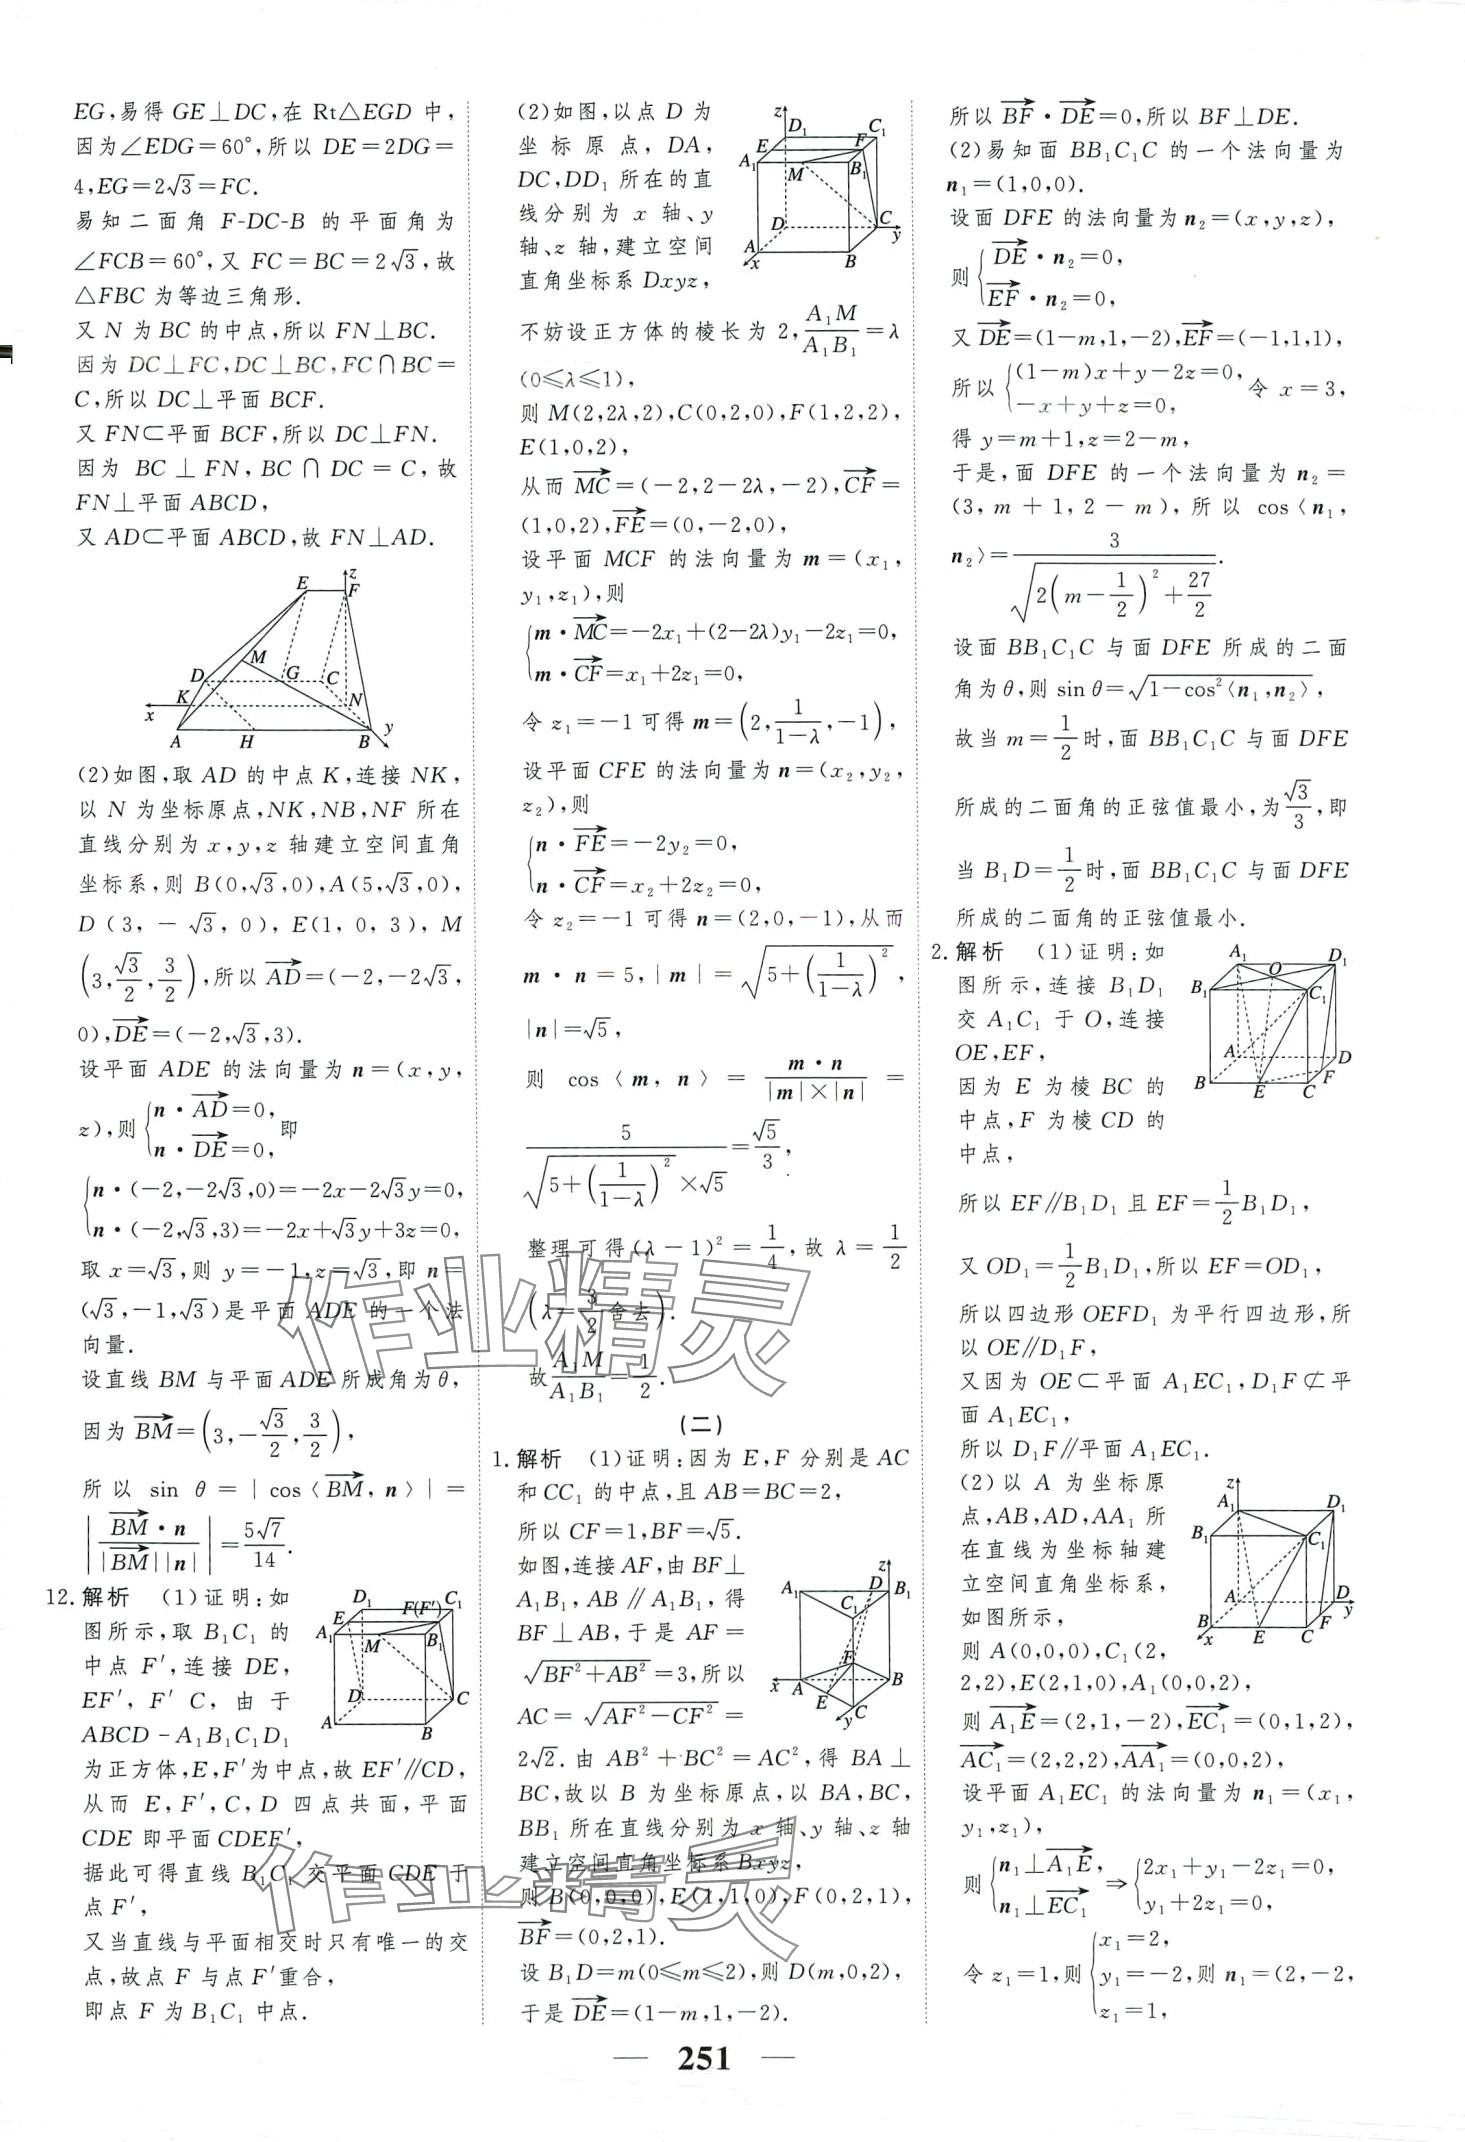 EG,易得 GE⊥DC,在 Rt△EGD 中,
因为∠EDG=60°,所以 DE=2DG=
4,EG=2√3=FC.
易知二面角 F-DC-B 的平面角为
∠FCB=60°,又 FC=BC=2√3,故
△FBC 为等边三角形.
又 N 为 BC 的中点,所以 FN⊥BC.
因为 DC⊥FC,DC⊥BC,FC∩BC=
C,所以 DC⊥平面 BCF.
又 FN⊂平面 BCF,所以 DC⊥FN.
因为 BC⊥FN,BC∩DC=C,故
FN⊥平面 ABCD,
又 AD⊂平面 ABCD,故 FN⊥AD.
E z F
M
D G C
K N
x
A H B y
(2)如图,取 AD 的中点 K,连接 NK,
以 N 为坐标原点,NK,NB,NF 所在
直线分别为 x,y,z 轴建立空间直角
坐标系,则 B(0,√3,0),A(5,√3,0),
D(3,-√3,0),E(1,0,3),M
(3,√3/2,3/2),所以 →AD=(-2,-2√3,
0),→DE=(-2,√3,3).
设平面 ADE 的法向量为 n=(x,y,
z),则{n·→AD=0, n·→DE=0, 即
{n·(-2,-2√3,0)=-2x-2√3y=0,
n·(-2,√3,3)=-2x+√3y+3z=0,
取 x=√3,则 y=-1,z=√3,即 n=
(√3,-1,√3)是平面 ADE 的一个法
向量.
设直线 BM 与平面 ADE 所成角为θ,
因为 →BM=(3,-√3/2,3/2),
所以 sin θ=|cos⟨→BM,n⟩|=
|→BM·n/(|→BM||n|)|=5√7/14.
12.解析 (1)证明:如
图所示,取 B₁C₁ 的
中点 F′,连接 DE,
EF′,F′C,由于
ABCD-A₁B₁C₁D₁
D₁ C₁
E F(F′)
A₁ M B₁
D C
A B
为正方体,E,F′为中点,故 EF′∥CD,
从而 E,F′,C,D 四点共面,平面
CDE 即平面 CDEF′,
据此可得直线 B₁C₁ 交平面 CDE 于
点 F′,
又当直线与平面相交时只有唯一的交
点,故点 F 与点 F′重合,
即点 F 为 B₁C₁ 中点.
(2)如图,以点 D 为
坐标原点,DA,
DC,DD₁ 所在的直
线分别为 x 轴、y
轴、z 轴,建立空间
直角坐标系 Dxyz,
z D₁ C₁
E F
A₁ M B₁
D C y
A x B
不妨设正方体的棱长为 2,A₁M/A₁B₁=λ
(0≤λ≤1),
则 M(2,2λ,2),C(0,2,0),F(1,2,2),
E(1,0,2),
从而 →MC=(-2,2-2λ,-2),→CF=
(1,0,2),→FE=(0,-2,0),
设平面 MCF 的法向量为 m=(x₁,
y₁,z₁),则
{m·→MC=-2x₁+(2-2λ)y₁-2z₁=0,
m·→CF=x₁+2z₁=0,
令 z₁=-1 可得 m=(2,1/(1-λ),-1),
设平面 CFE 的法向量为 n=(x₂,y₂,
z₂),则
{n·→FE=-2y₂=0,
n·→CF=x₂+2z₂=0,
令 z₂=-1 可得 n=(2,0,-1),从而
m·n=5,|m|=√(5+(1/(1-λ))²),
|n|=√5,
则 cos⟨m,n⟩=m·n/(|m|×|n|)=
5/(√(5+(1/(1-λ))²)×√5)=√5/3,
整理可得(λ-1)²=1/4,故 λ=1/2
(λ=3/2舍去).
故A₁M/A₁B₁=1/2.
(二)
1.解析 (1)证明:因为 E,F 分别是 AC
和 CC₁ 的中点,且 AB=BC=2,
所以 CF=1,BF=√5.
如图,连接 AF,由 BF⊥
A₁B₁,AB∥A₁B₁,得
BF⊥AB,于是 AF=
√(BF²+AB²)=3,所以
AC=√(AF²-CF²)=
z
A₁ D B₁
C₁
F
x A B
E C
y
2√2.由 AB²+BC²=AC²,得 BA⊥
BC,故以 B 为坐标原点,以 BA,BC,
BB₁ 所在直线分别为 x 轴、y 轴、z 轴
建立空间直角坐标系 Bxyz,
则 B(0,0,0),E(1,1,0),F(0,2,1),
→BF=(0,2,1).
设 B₁D=m(0≤m≤2),则 D(m,0,2),
于是 →DE=(1-m,1,-2).
所以 →BF·→DE=0,所以 BF⊥DE.
(2)易知面 BB₁C₁C 的一个法向量为
n₁=(1,0,0).
设面 DFE 的法向量为 n₂=(x,y,z),
则{→DE·n₂=0, →EF·n₂=0,
又 →DE=(1-m,1,-2),→EF=(-1,1,1),
所以{(1-m)x+y-2z=0, -x+y+z=0, 令 x=3,
得 y=m+1,z=2-m,
于是,面 DFE 的一个法向量为 n₂=
(3,m+1,2-m),所以 cos⟨n₁,
n₂⟩=3/√(2(m-1/2)²+27/2).
设面 BB₁C₁C 与面 DFE 所成的二面
角为θ,则 sin θ=√(1-cos²⟨n₁,n₂⟩),
故当 m=1/2时,面 BB₁C₁C 与面 DFE
所成的二面角的正弦值最小,为√3/3,即
当 B₁D=1/2时,面 BB₁C₁C 与面 DFE
所成的二面角的正弦值最小.
2.解析 (1)证明:如
图所示,连接 B₁D₁
交 A₁C₁ 于 O,连接
OE,EF,
因为 E 为棱 BC 的
中点,F 为棱 CD 的
中点,
A₁ O D₁
B₁ C₁
A D
B E C F
所以 EF∥B₁D₁ 且 EF=1/2B₁D₁,
又 OD₁=1/2B₁D₁,所以 EF=OD₁,
所以四边形 OEFD₁ 为平行四边形,所
以 OE∥D₁F,
又因为 OE⊂平面 A₁EC₁,D₁F⊄平
面 A₁EC₁,
所以 D₁F∥平面 A₁EC₁.
(2)以 A 为坐标原
点,AB,AD,AA₁ 所
在直线为坐标轴建
立空间直角坐标系,
如图所示,
z
A₁ D₁
B₁ C₁
A D y
B x E C F
则 A(0,0,0),C₁(2,
2,2),E(2,1,0),A₁(0,0,2),
则 →A₁E=(2,1,-2),→EC₁=(0,1,2),
→AC₁=(2,2,2),→AA₁=(0,0,2),
设平面 A₁EC₁ 的法向量为 n₁=(x₁,
y₁,z₁),
则{n₁⊥→A₁E, n₁⊥→EC₁ ⇒{2x₁+y₁-2z₁=0, y₁+2z₁=0,
令 z₁=1,则{x₁=2, y₁=-2, z₁=1, 则 n₁=(2,-2,
— 251 —
作业精灵
作业精灵